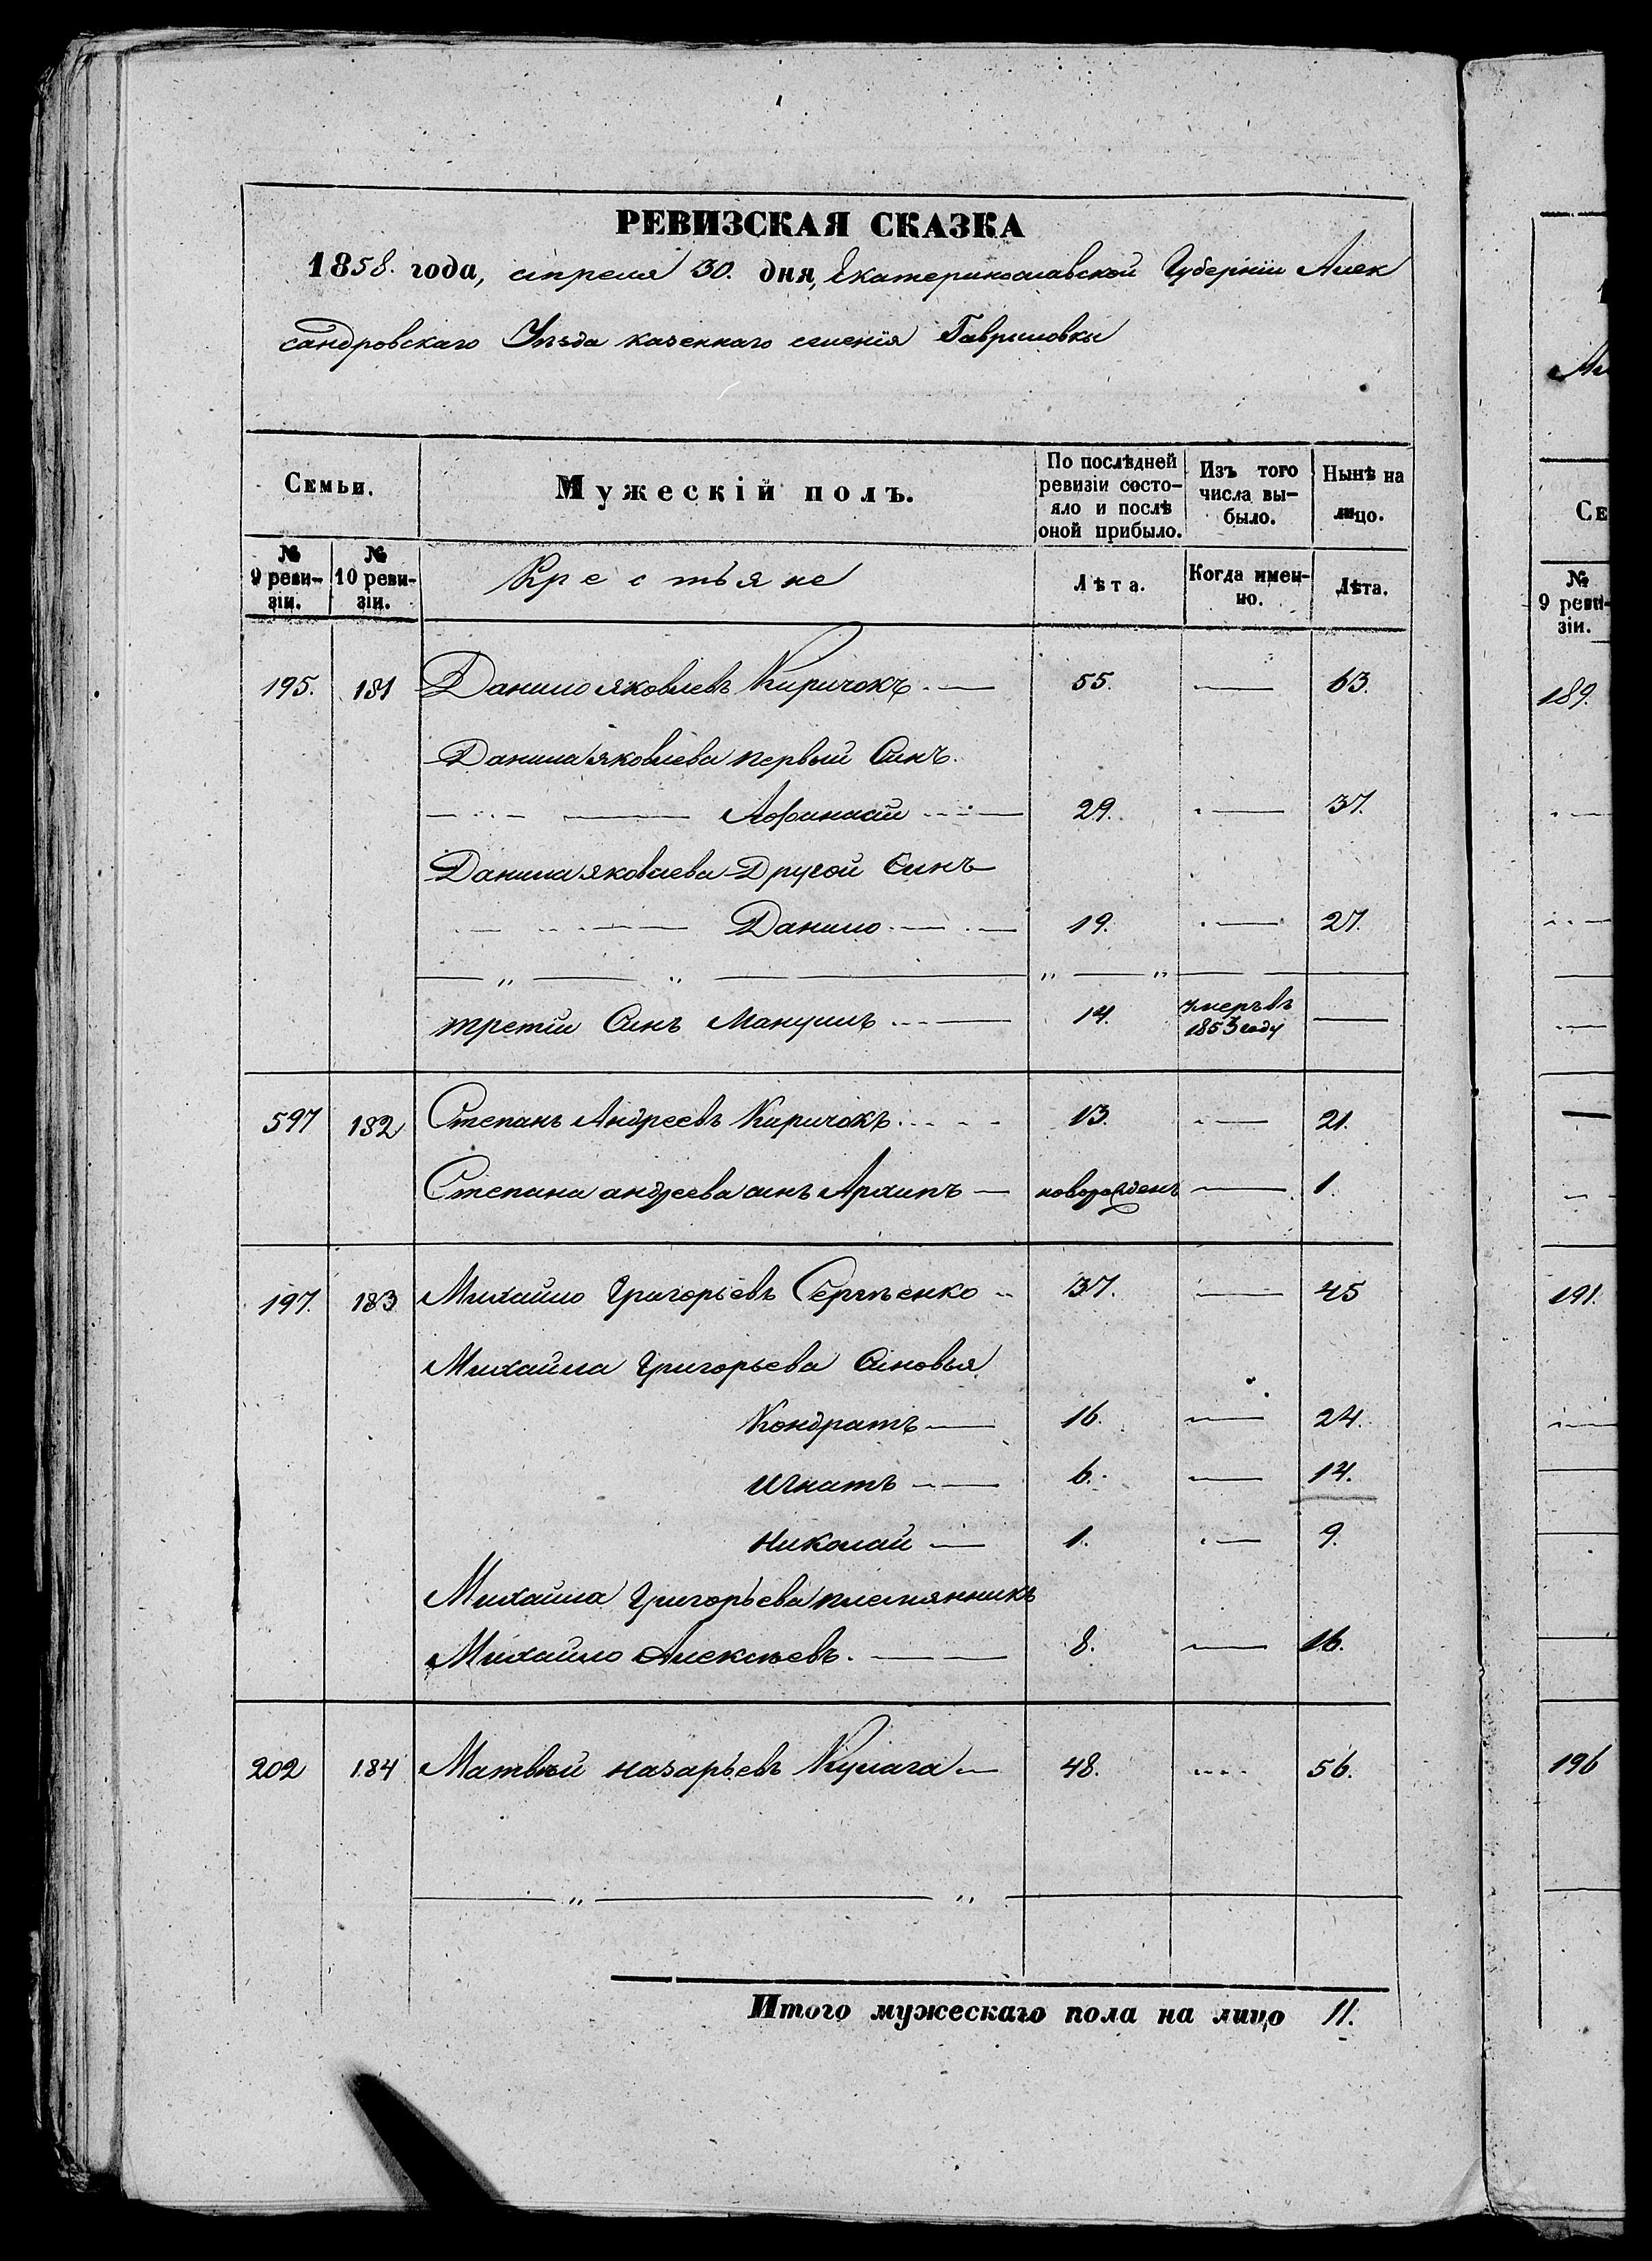 РЕВИЗСКАЯ СКАЗКА
1858. года, апреля 30. дня, Екатеринославской Губерніи Алек
сандровскаго Уѣзда казеннаго селенія Гавриловки
Семьи. Мужескій полъ. По послѣдней ревизіи состо- яло и послѣ оной прибыло. Изъ того числа вы- было. Нынѣ на лицо.
№ 9 реви- зіи. № 10 реви- зіи. Крестьяне Лѣта. Когда имен- но. Лѣта.
195. 181 Данило яковлевъ Киричокъ. 55. 63.
Данила яковлева первый Синъ.
Афанасій 29. 37.
Данила яковлева Другой Синъ
Данило 19. 27.
" " " "
третій Синъ Мануилъ 14. умеръ въ 1853 году
597 182 Степанъ Андреевъ Киричокъ 13. 21.
Степана андреева синъ Архипъ новорожденъ 1.
197. 183 Михайло Григорьевъ Сергѣенко 37. 45
Михайла Григорьева Синовья
Кондратъ 16. 24.
Игнатъ 6. 14.
Николай 1. 9.
Михайла Григорьева племянникъ
Михайло Алексѣевъ. 8. 16.
202 184 Матвѣй назарьевъ Кулага 48. 56.
" "
Итого мужескаго пола на лицо 11.
Ми
Се
№ 9 реви- зіи.
189.
191.
196